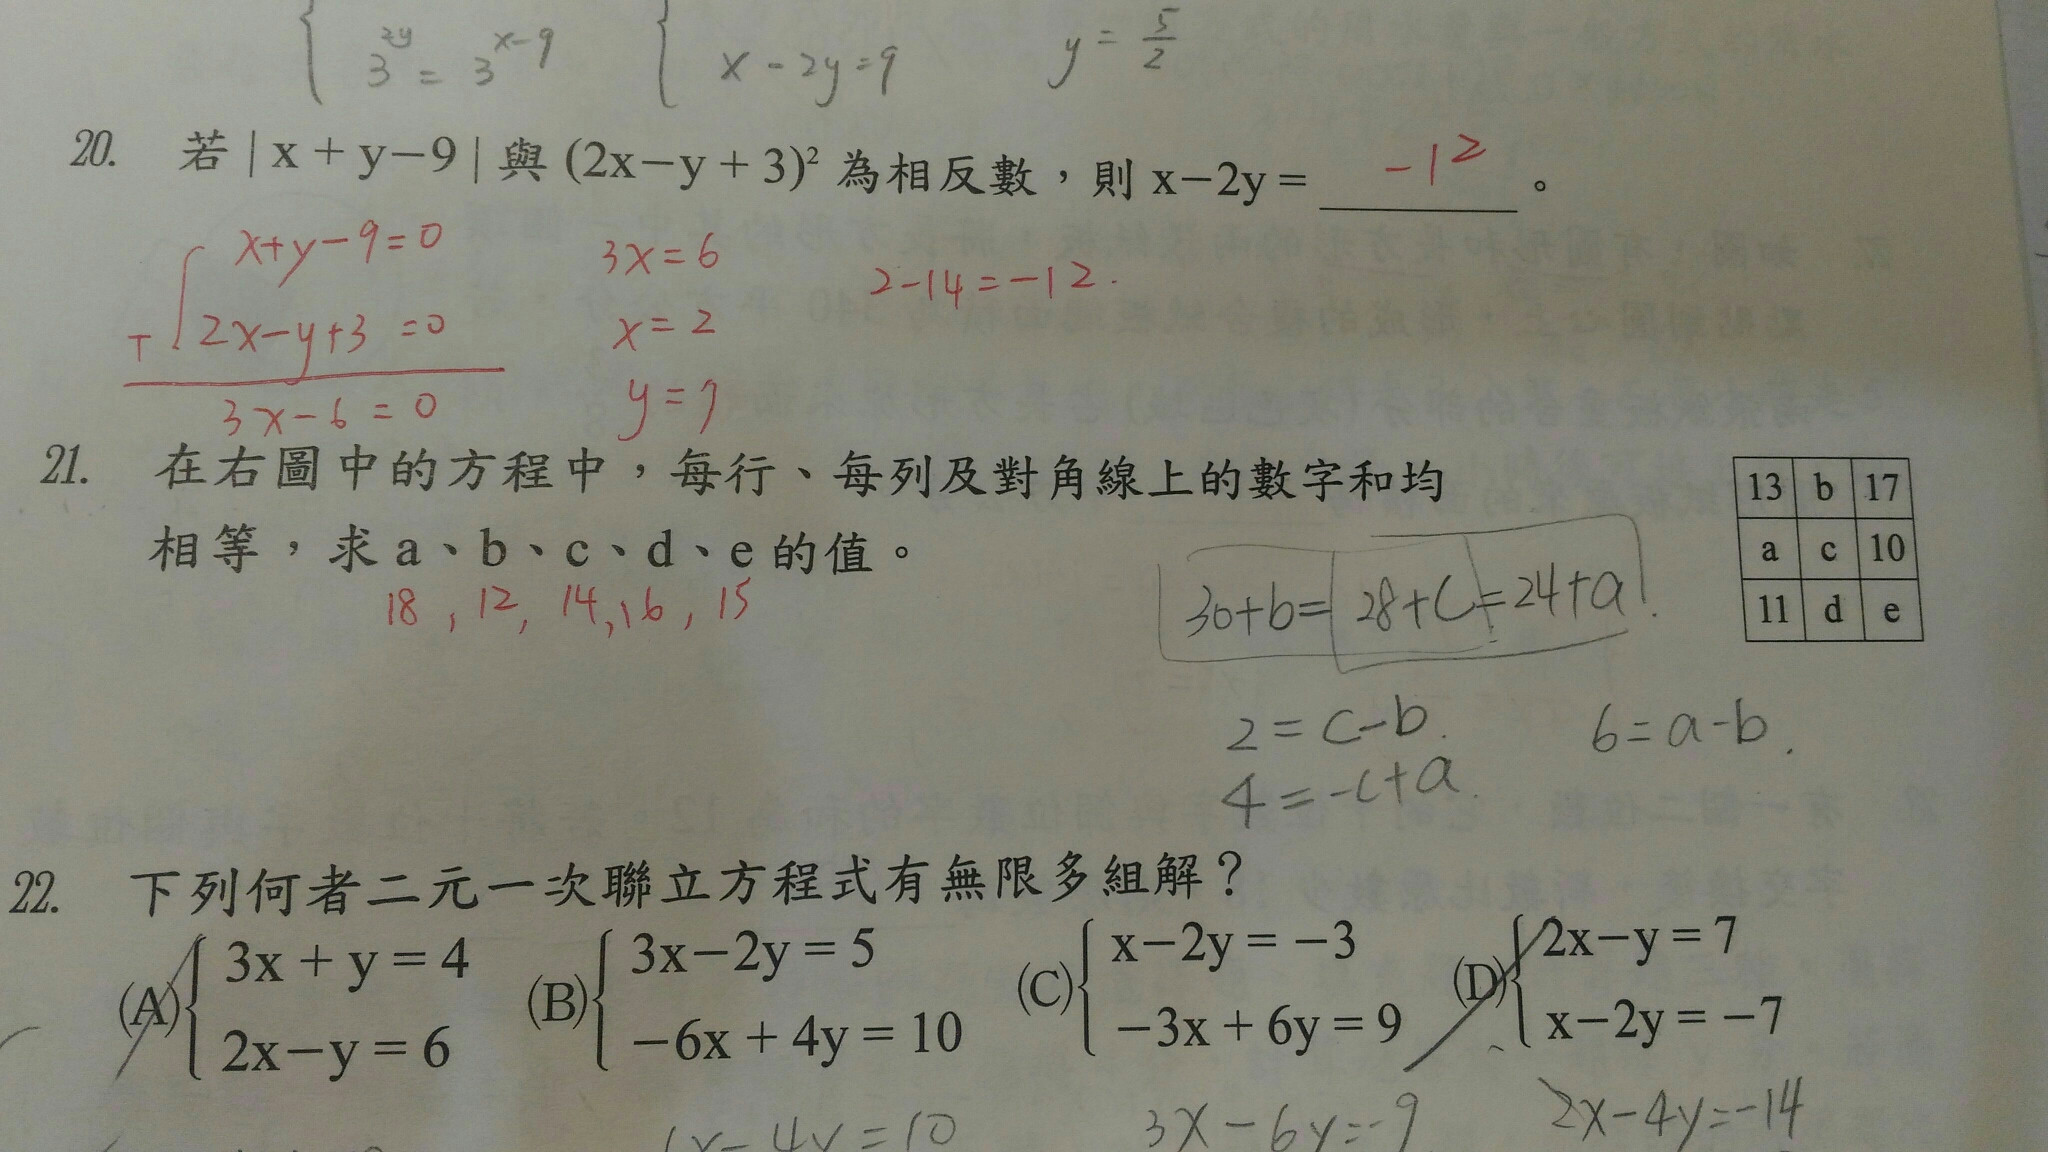 3^2y = 3^x-9
x-2y=9
y = 5/2
20. 若 | x + y-9 | 與 (2x-y + 3)² 為相反數，則 x-2y = -12 。
x+y-9=0
2x-y+3 =0
3x-6 = 0
3x=6
x=2
y=7
2-14=-12.
21. 在右圖中的方程中，每行、每列及對角線上的數字和均
相等，求 a、b、c、d、e 的值。
18, 12, 14, 16, 15
13 b 17
a c 10
11 d e
30+b= 28+c=24+a
2=c-b.
4=-c+a.
6=a-b.
22. 下列何者二元一次聯立方程式有無限多組解？
(A) 3x + y = 4
2x-y = 6
(B) 3x-2y = 5
-6x + 4y = 10
(C) x-2y = -3
-3x + 6y = 9
(D) 2x-y = 7
x-2y = -7
-4y=10
3x-6y=-9
2x-4y=-14